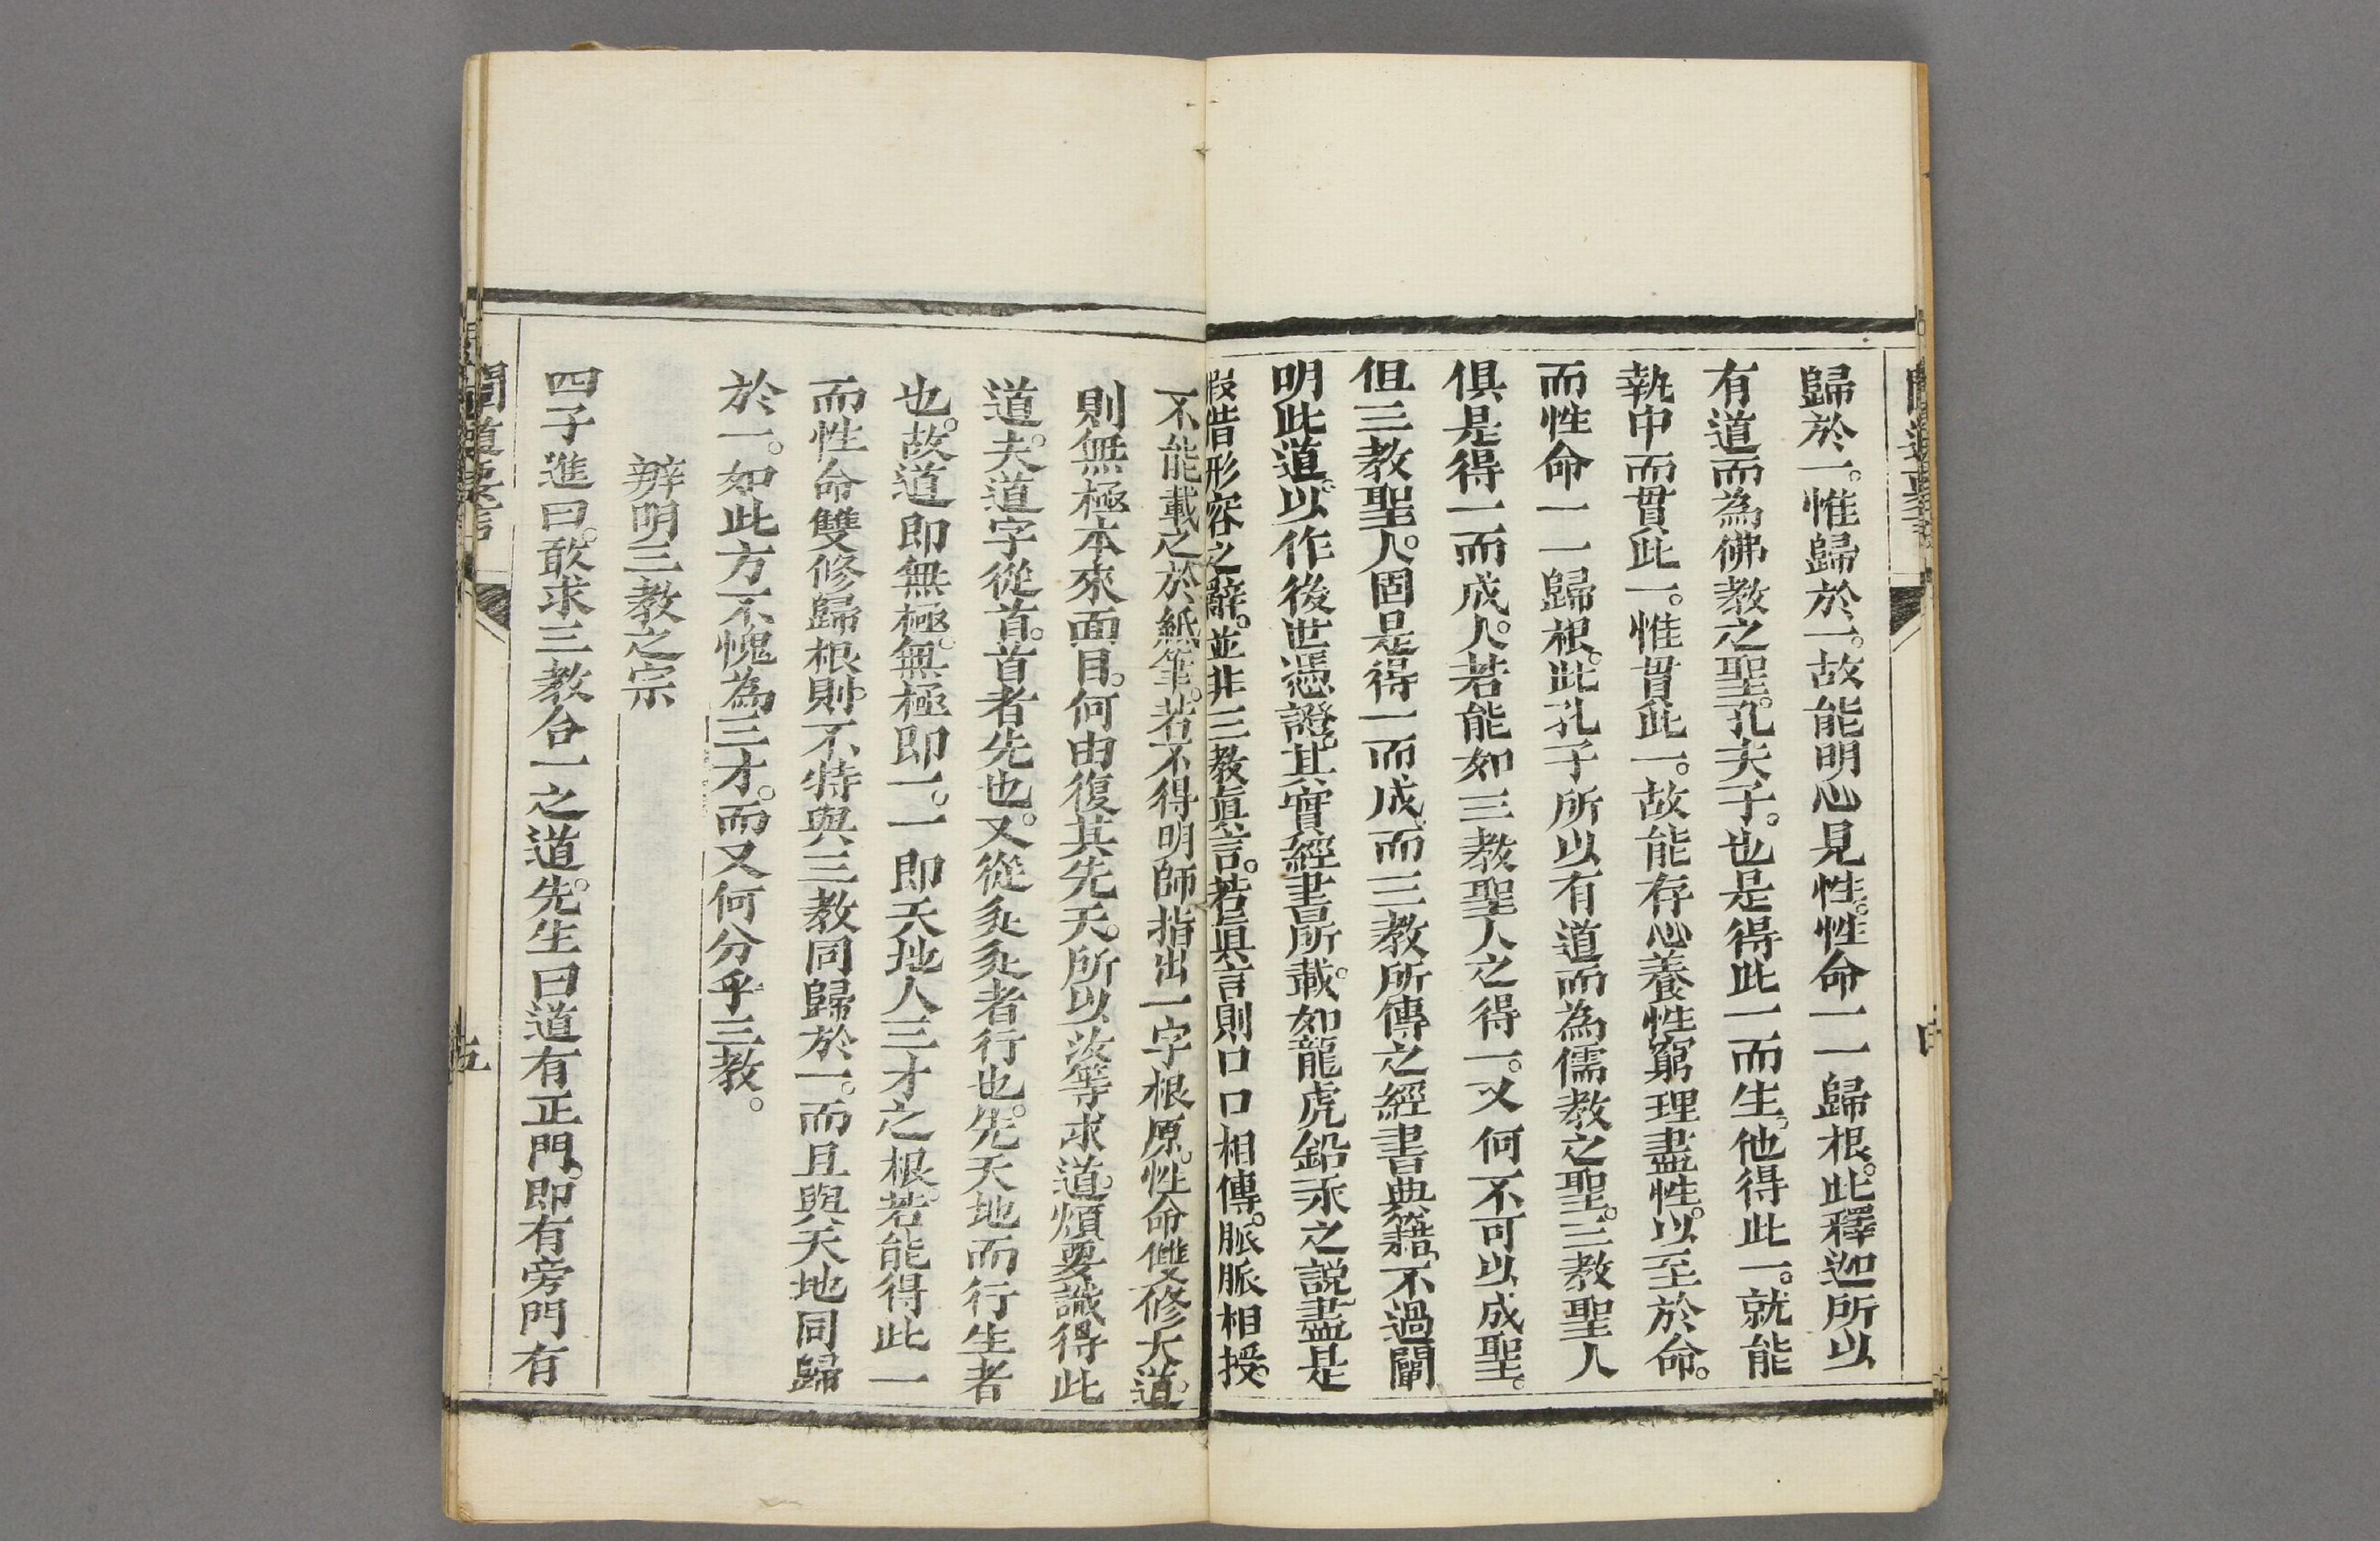 歸於一。惟歸於一。故能明心見性。性命一一歸根。此釋迦所以
有道而為佛教之聖。孔夫子。也是得此一而生。他得此一。就能
執中而貫此一。惟貫此一。故能存心養性窮理盡性。以至於命。
而性命一一歸根。此孔子所以有道而為儒教之聖。三教聖人
俱是得一而成人。若能如三教聖人之得一。又何不可以成聖。
但三教聖人。固是得一而成。而三教所傳之經書典籍、不過闡
明此道。以作後世憑證。其實經書所載。如龍虎鉛汞之說、盡是
假借形容之辭。並非三教眞言。若眞言則口口相傳。脈脈相授。
不能載之於紙筆。若不得明師指出一字根原。性命雙修大道。
則無極本來面目。何由復其先天。所以汝等求道。煩要識得此
道。夫道字從首。首者先也。又從辵辵者行也。先天地而行生者
也。故道即無極。無極即一。一即天地人三才之根。若能得此一
而性命雙修歸根。則不特與三教同歸於一。而且與天地同歸
於一。如此方不愧為三才。而又何分乎三教。
辨明三教之宗
四子進曰。敢求三教合一之道。先生曰道有正門。即有旁門有
五